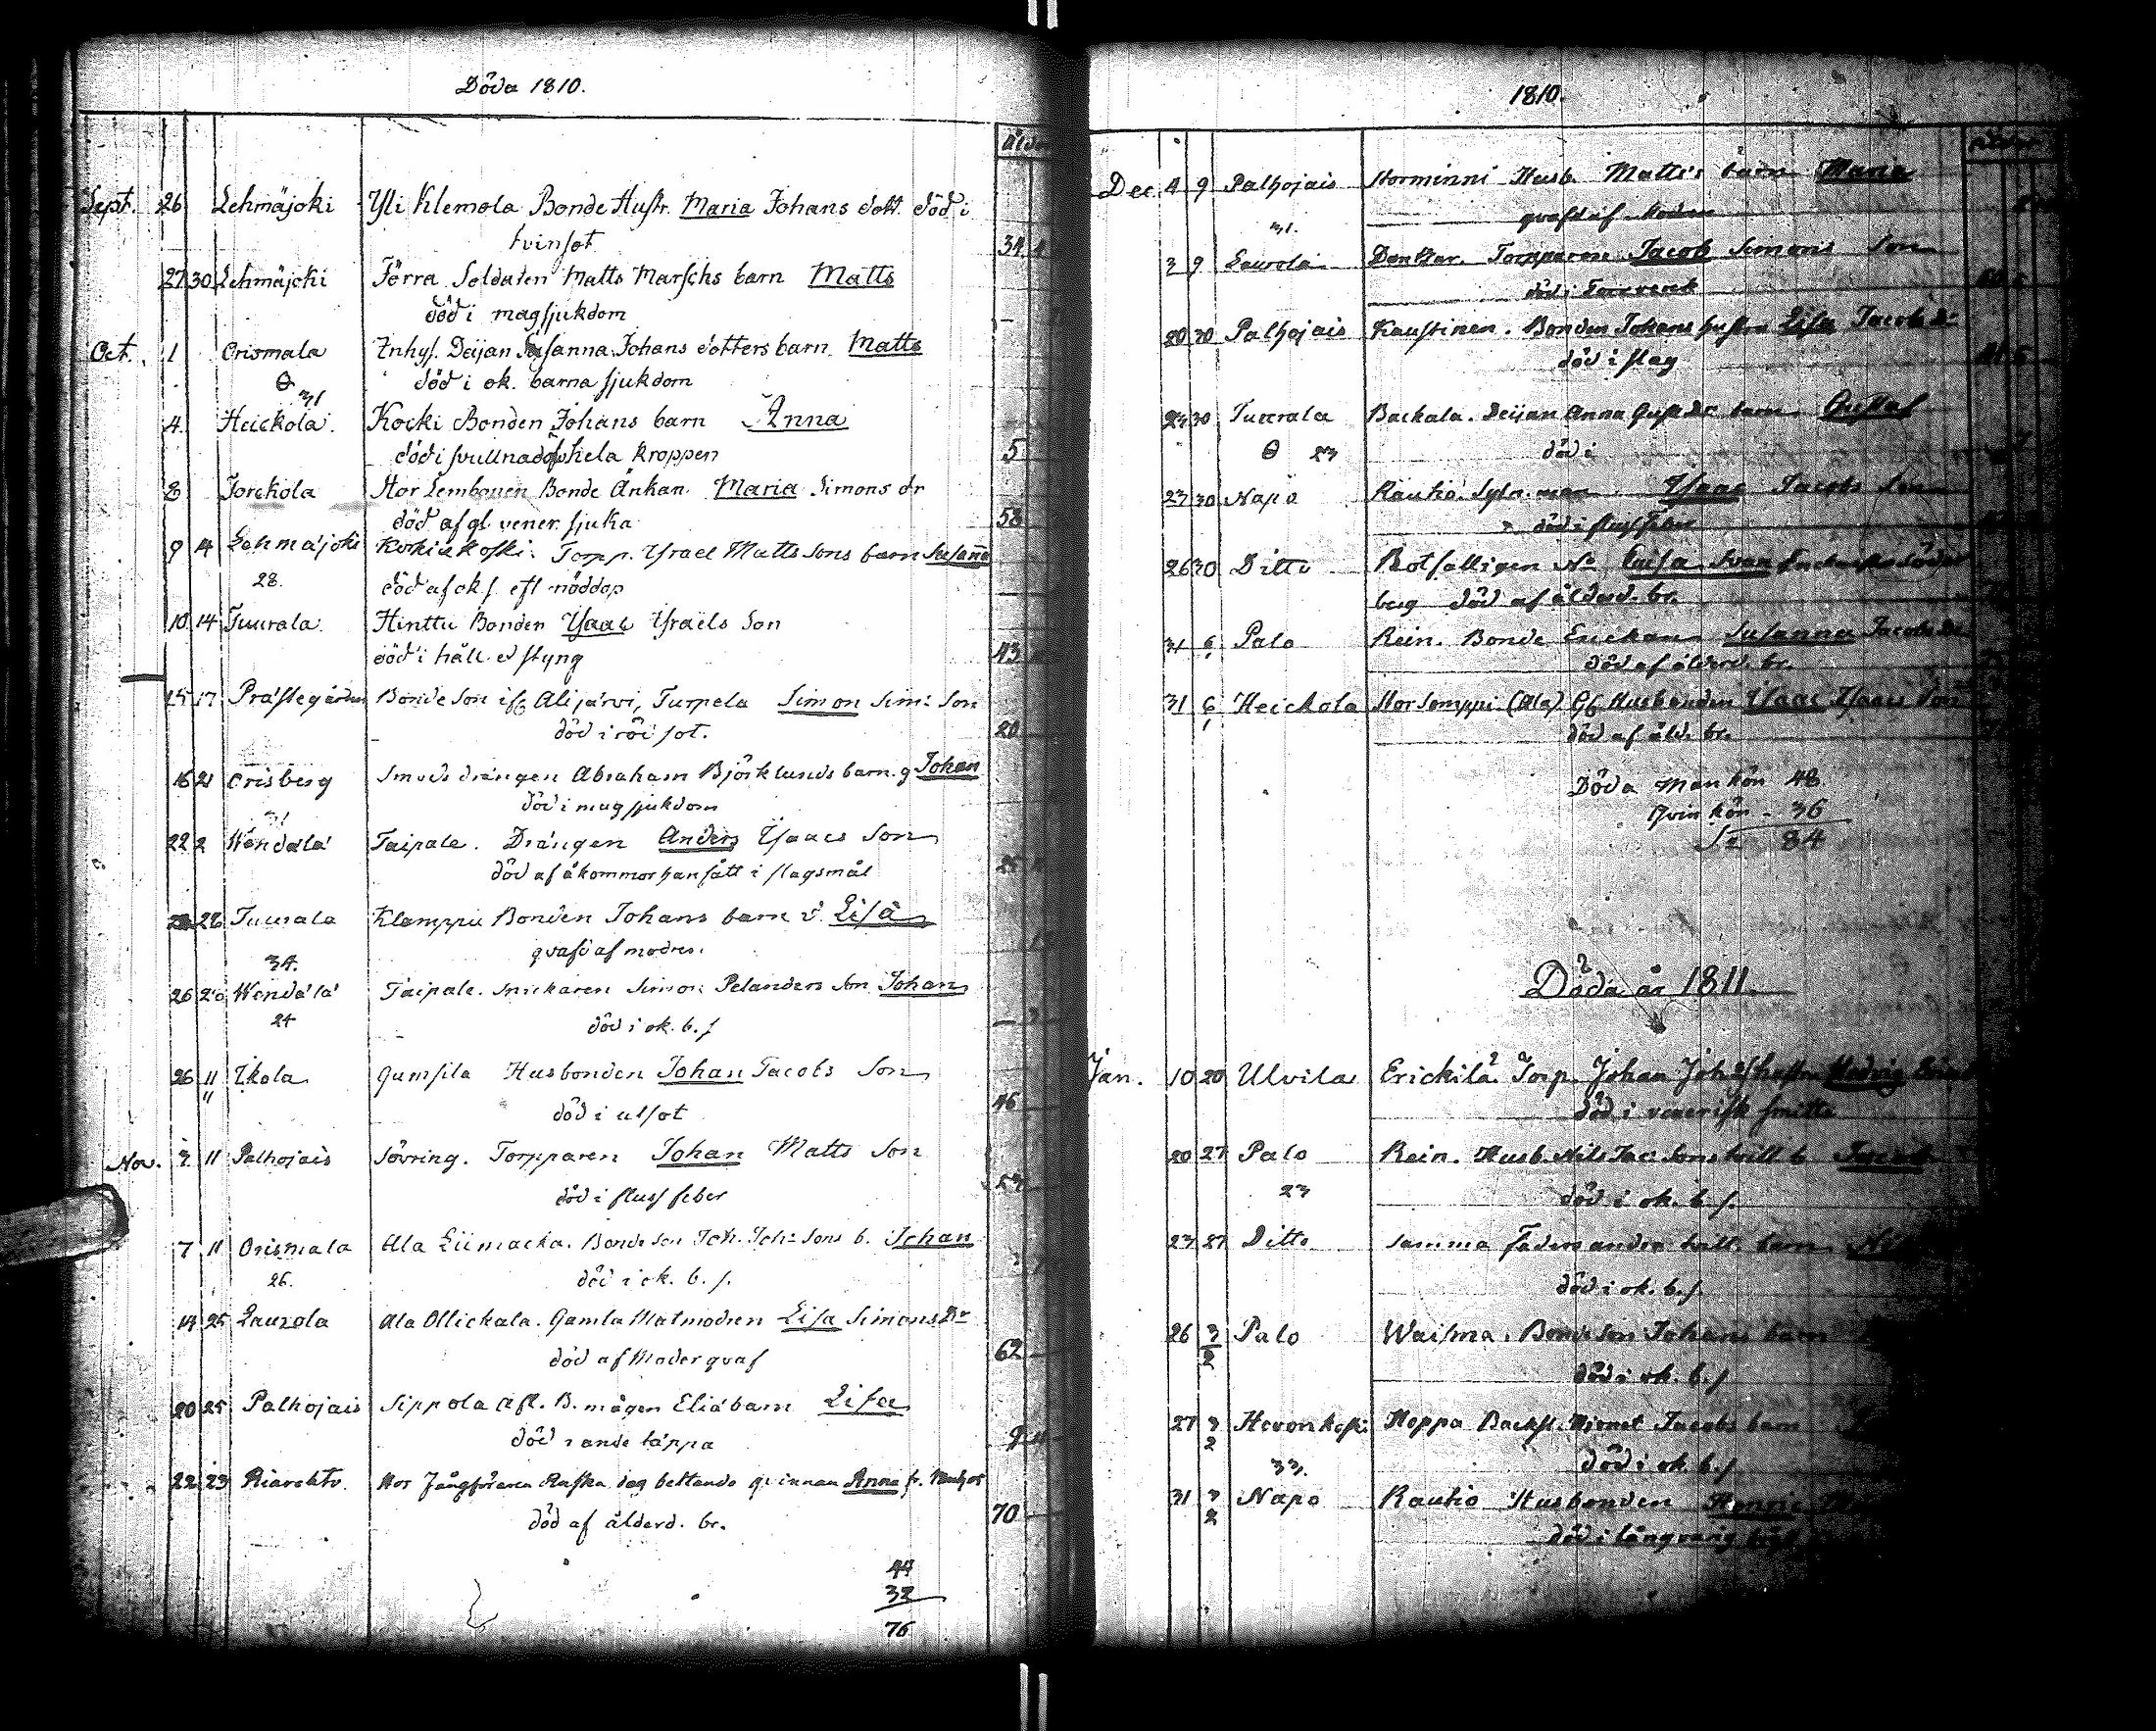 Döda 1810.
Ålder
Sept. 26 Lehmäjoki Yli Klemola Bonde Hustr. Maria Johans dott. död i
tvinsot 34
27 30 Lehmäjoki Förra Soldaten Matts Marschs barn Matts
död i magsjukdom
Oct. 1 Orismala Inhys. Deijan Susanna Johans dotters barn Matts
död i ok. barna sjukdom
31
4. Heickola. Kocki Bonden Johans barn Anna
död i svullnad hela kroppen 5
8 Jorckola Stor Bonde Änkan. Maria Simons dr
död af gl. vener. sjuka 58
9 14 Lehmäjoki Kokiskoski. Torp. Ysrael Matts sons barn Susanna
28. död af ok. s. eft. nöddop
10 14 Tuurala. Hinttu Bonden Ysaac Ysraëls Son
död i håll o styng 43
15 17 Prästegården Bonde Son ifr. Alijärvi, Turpela Simon Sim: Son
död i röd sot. 20
16 21 Orisberg Smeds drängen Abraham Björklunds barn. g Johan
31 död i magsjukdom
22 2 Wendälä Taipale. Drängen Anders Ysaacs Son
död af åkommor han fått i slagsmål 25
28 Tuurala Klemppu Bonden Johans barn Lisa
34. qvafd af modren.
26 28 Wendälä Taipale. Snickaren Simon Pelanders Son Johan
24 död i ok. b. s
26 11 Ikola Gumsila Husbonden Johan Jacobs Son
död i utsot 46
Nov. 3 11 Palhojais Sövring. Torpparen Johan Matts Son
död i fluss feber 53
7 11 Orismala Ala Liimacka. Bonde Son Joh. Joh: Sons b. Johan
26. död i ok. b. s.
14 25 Laurola Ala Ollickala. Gamla Matmodren Lisa Simons Dr
död af Moder qvaf 62
20 25 Palhojais Sippola Afl. B. mågen Eliä barn Lisa
död i andetäppa 9
22 23 Riarckto. Stor Jångfråren Raska dag bettande qvinnan Anna
död af ålderd. br. 70
44
32
76
1810.
Dec. 4 9 Palhojais Storminni Husb. Matts's barn Maria
31. qvafd af modren
3 9 Laurola Torpparen Jacob Simons Son
död i
20 30 Palhojais Kaustinen. Bonden Johans hustru Lisa Jacobs Dr
död i slag
24 30 Tuurala Backala. Deijan Anna Gust. Dr barn Gustaf
23 död i
23 30 Napo Rautio Sytn. man Ysaac Jacobs Son
död i fluss feber
26 30 Ditto Rotfattigen Lisa
berg död af ålderd. br.
31 6 Palo Rein. Bonde Enckan Susanna Jacobs Dr
död af ålderd. br.
31 6 Heickola Stor Somppi (Ala) Husbonden Ysaac Ysaacs Son
död af åld. br.
Döda Mankön 48
Qvinkön - 36
Sa 84
Döda år 1811.
Jan. 10 20 Ulvila Erickilä Torp. Johan Joh. hustru Hedvig
död i venerisk smitta
20 27 Palo Rein. Husb. Nils Jac. Sons tvill. b. Jacob
23 död i ok. b. s.
23 27 Ditto samma Faders andra tvill. barn
död i ok. b. s.
26 3/2 Palo Waisma. Bonde Son Johans barn
död i ok. b. s
27 3/2 Hevonkoski Hoppa Jacobs barn
33. död i ok. b. s
31 3/2 Napo Rautio Husbonden Henric
död i långvarig